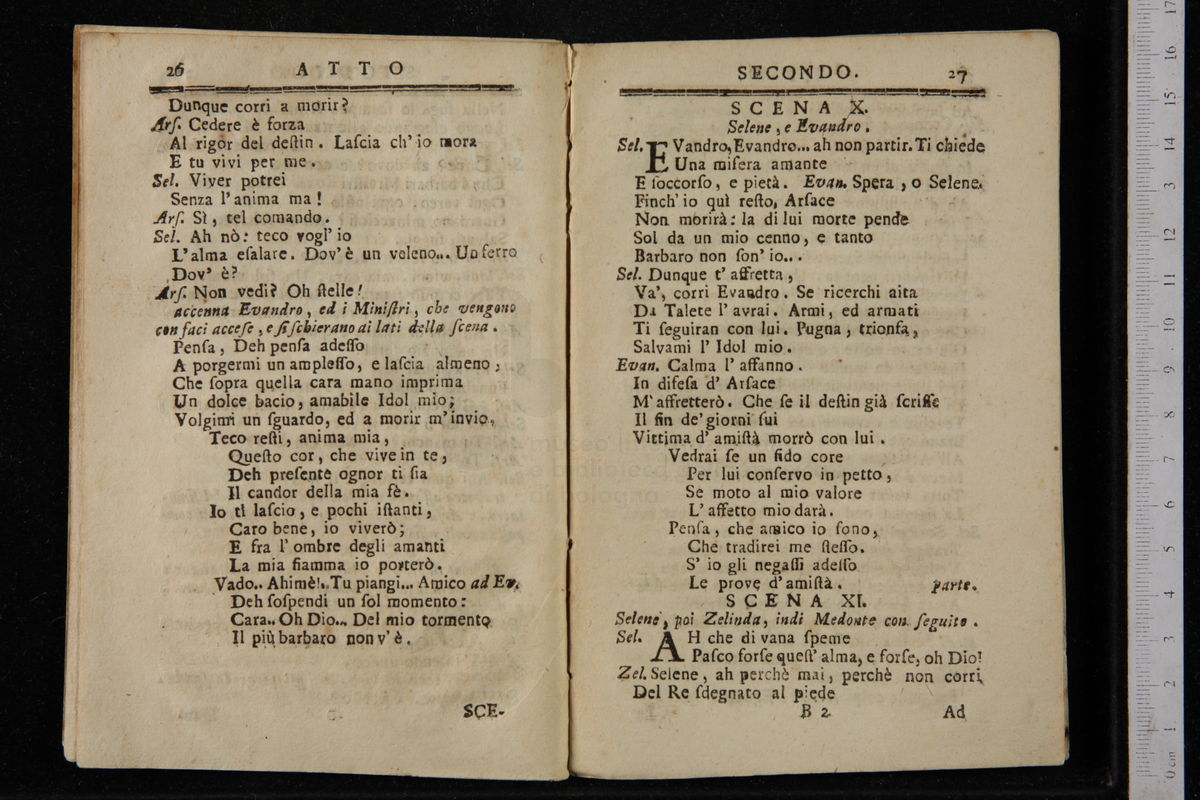 26 ATTO
Dunque corri a morir?
Arſ. Cedere è forza
Al rigor del deſtin. Laſcia ch' io mora
E tu vivi per me.
Sel. Viver potrei
Senza l' anima ma!
Arſ. Sì, tel comando.
Sel. Ah nò: teco vogl' io
L' alma eſalare. Dov' è un veleno... Un ferro
Dov' è?
Arſ. Non vedi? Oh ſtelle!
accenna Evandro, ed i Miniſtri, che vengono
con faci acceſe, e ſi ſchierano ai lati della ſcena.
Penſa, Deh penſa adeſſo
A porgermi un ampleſſo, e laſcia almeno,
Che ſopra quella cara mano imprima
Un dolce bacio, amabile Idol mio;
Volgimi un ſguardo, ed a morir m' invio.
Teco reſti, anima mia,
Queſto cor, che vive in te,
Deh preſente ognor ti ſia
Il candor della mia fè.
Io ti laſcio, e pochi iſtanti,
Caro bene, io viverò;
E fra l' ombre degli amanti
La mia fiamma io porterò.
Vado.. Ahimè!.. Tu piangi... Amico ad Ev.
Deh ſoſpendi un ſol momento:
Cara.. Oh Dio... Del mio tormento
Il più barbaro non v' è.
SCE-
SECONDO. 27
SCENA X.
Selene, e Evandro.
Sel. EVandro, Evandro... ah non partir. Ti chiede
Una miſera amante
E ſoccorſo, e pietà. Evan. Spera, o Selene.
Finch' io quì reſto, Arſace
Non morirà: la di lui morte pende
Sol da un mio cenno, e tanto
Barbaro non ſon' io...
Sel. Dunque t' affretta,
Va', corri Evandro. Se ricerchi aita
Da Talete l' avrai. Armi, ed armati
Ti ſeguiran con lui. Pugna, trionfa,
Salvami l' Idol mio.
Evan. Calma l' affanno.
In difeſa d' Arſace
M' affretterò. Che ſe il deſtin già ſcriſſe
Il fin de' giorni ſui
Vittima d' amiſtà morrò con lui.
Vedrai ſe un fido core
Per lui conſervo in petto,
Se moto al mio valore
L' affetto mio darà.
Penſa, che amico io ſono,
Che tradirei me ſteſſo.
S' io gli negaſſi adeſſo
Le prove d' amiſtà. parte.
SCENA XI.
Selene, poi Zelinda, indi Medonte con ſeguito.
Sel. AH che di vana ſpeme
Paſco forſe queſt' alma, e forſe, oh Dio!
Zel. Selene, ah perchè mai, perchè non corri
Del Re ſdegnato al piede
B 2 Ad